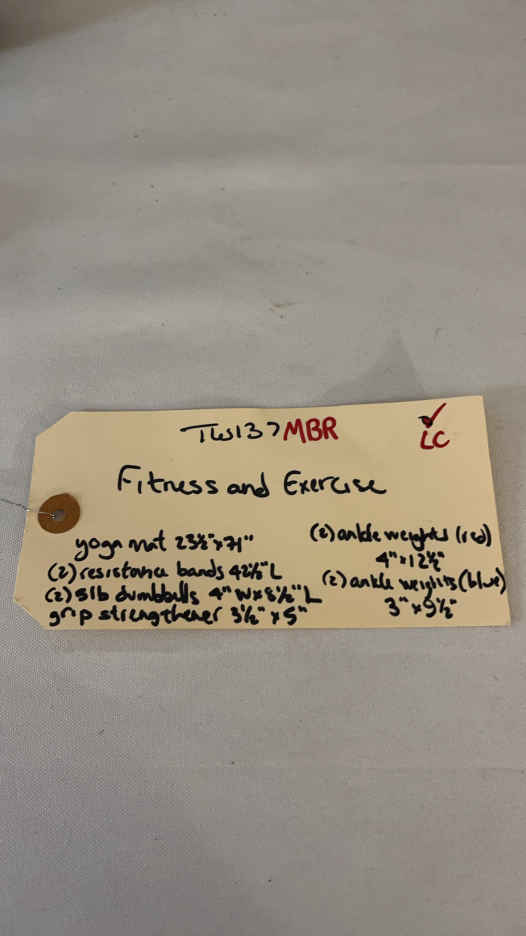 TW137 MBR
✓ LC
Fitness and Exercise
yoga mat 23½" x 71"
(2) resistance bands 42½" L
(2) 5lb dumbbells 4" W x 8½" L
grip strengthener 3½" x 5"
(2) ankle weights (red)
4" x 12½"
(2) ankle weights (blue)
3" x 9½"